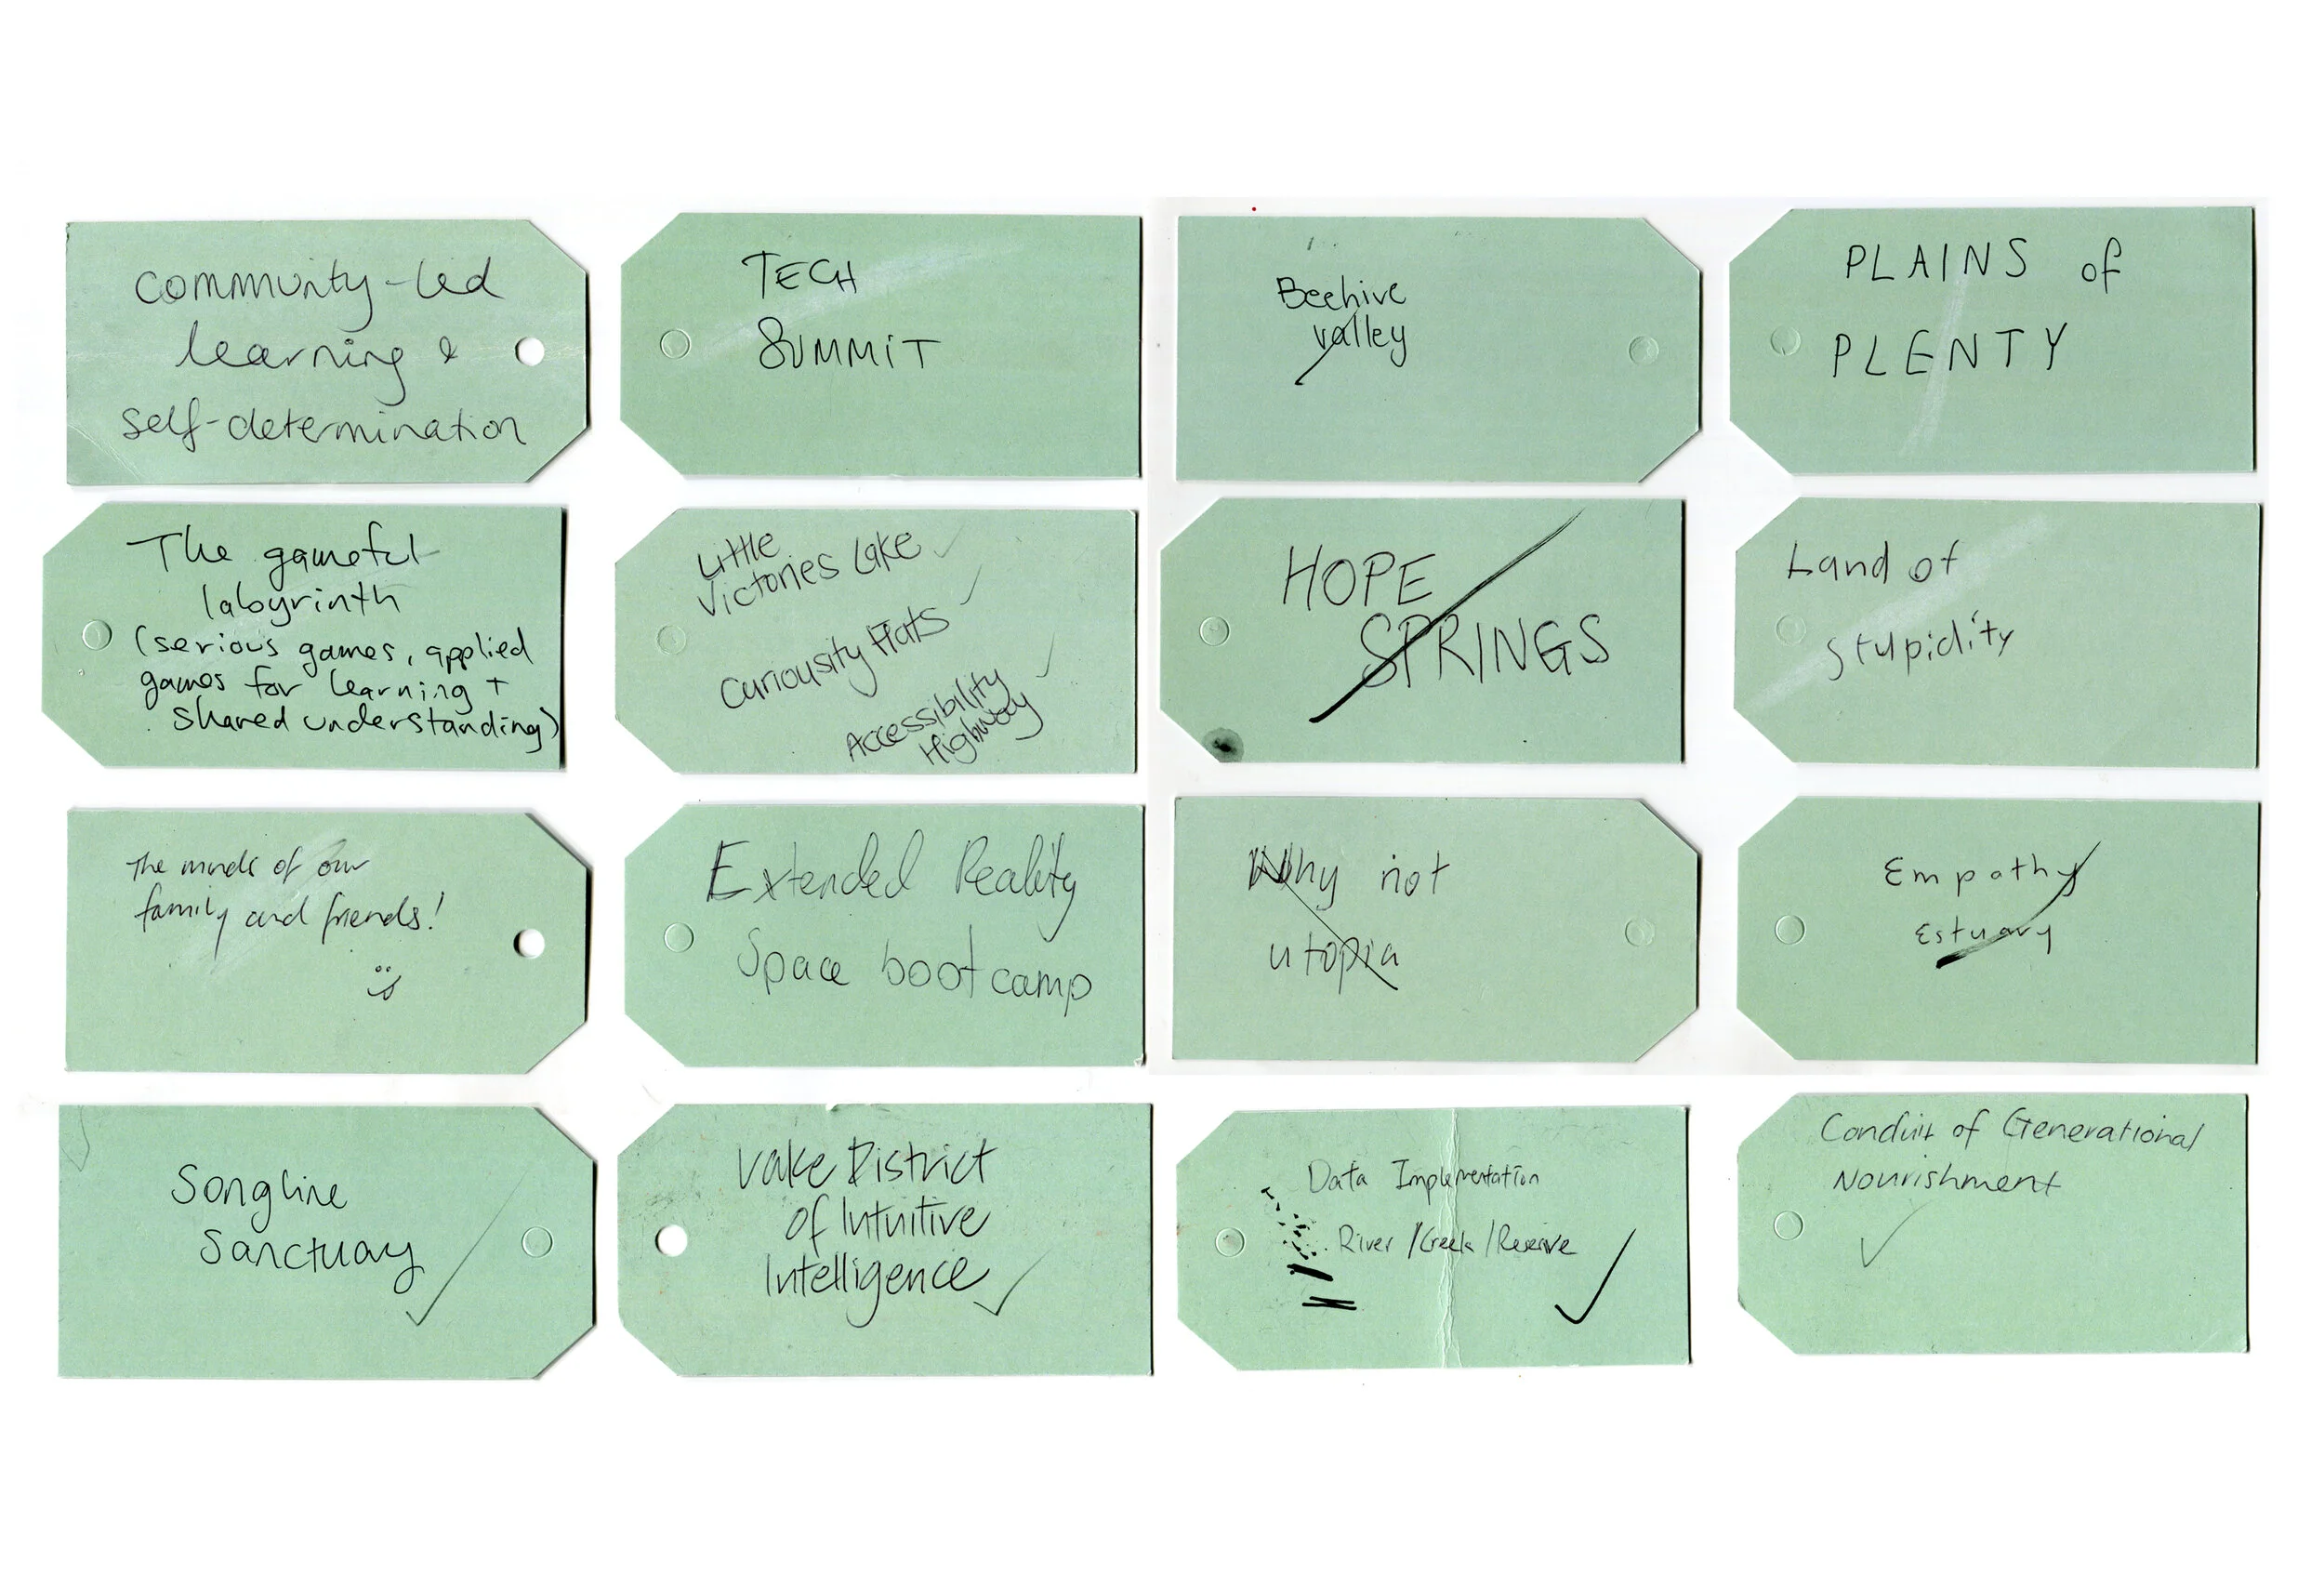 Community-led
learning &
self-determination
TECH
SUMMIT
Beehive
valley
PLAINS of
PLENTY
The gameful
labyrinth
(serious games, applied
games for learning +
shared understanding)
Little
Victories Lake
Curiousity Flats
Accessibility
Highway
HOPE
SPRINGS
Land of
stupidity
The minds of our
family and friends!
Extended Reality
Space bootcamp
Why not
utopia
Empathy
Estuary
Songline
Sanctuary
District
of Intuitive
Intelligence
Data Implementation
River / Creek / Reserve
Conduit of Generational
Nourishment